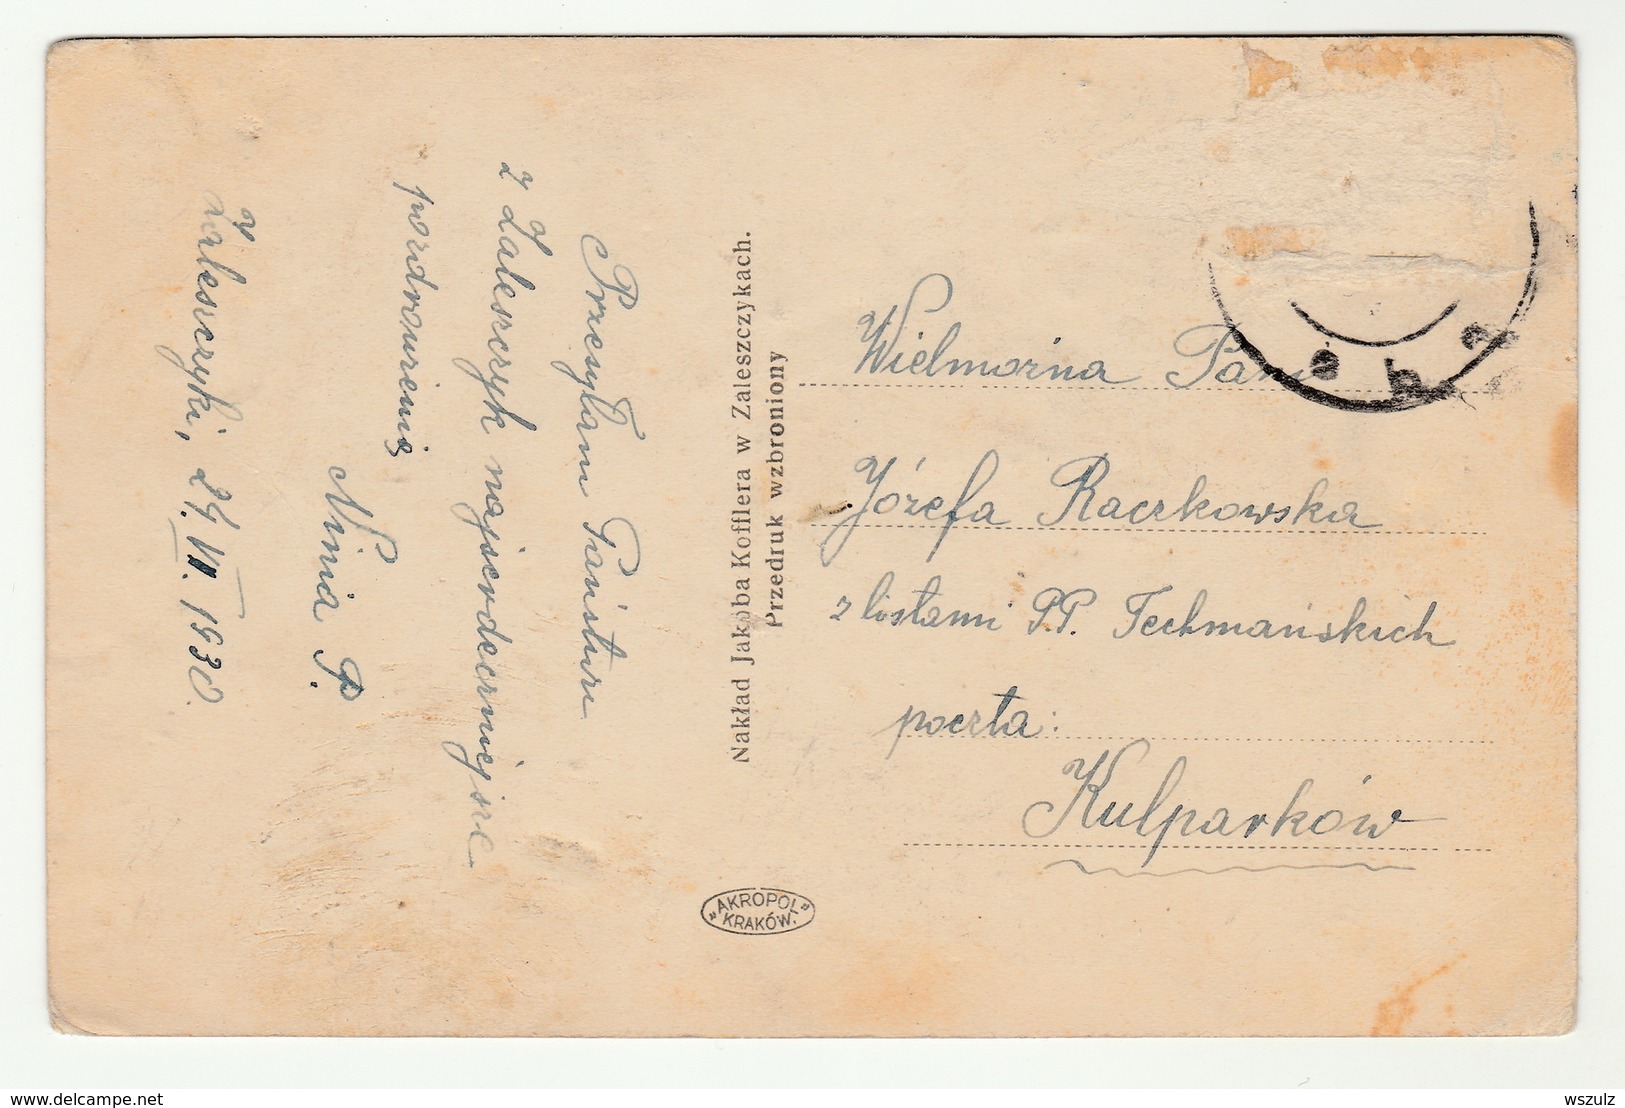 Przesyłam Państwu
z Zaleszczyk najserdeczniejsze
pozdrowienia
Ninia P.
Zaleszczyki, 24/VII. 1930.
Nakład Jakóba Kofflera w Zaleszczykach.
Przedruk wzbroniony
Wielmożna Pani
Józefa Raczkowska
z listami P.P. Techmańskich
poczta:
Kulparków
"AKROPOL"
KRAKÓW.
www.delcampe.net
wszulz